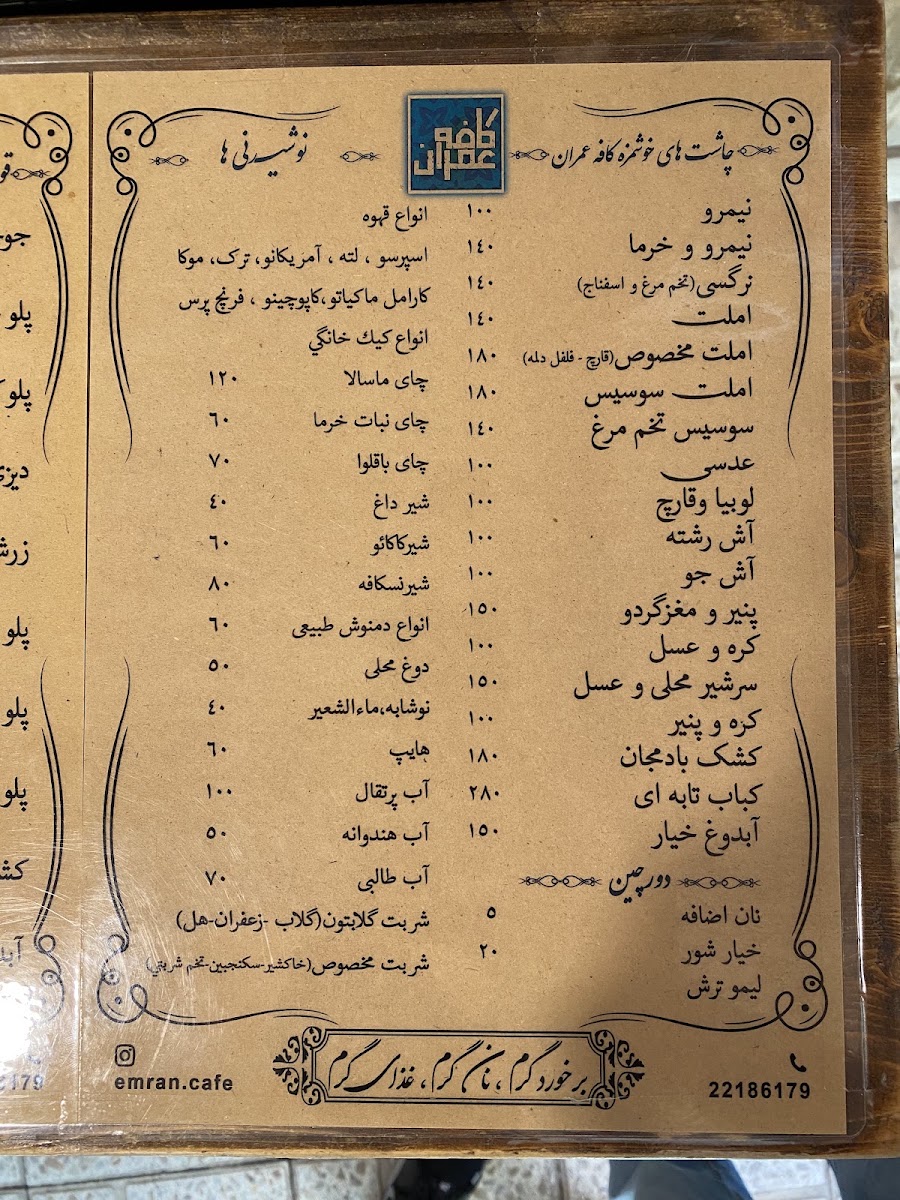 کافه عمران
چاشت های خوشمزه کافه عمران
نیمرو ۱۰۰
نیمرو و خرما ۱۴۰
نرگسی (تخم مرغ و اسفناج) ۱۴۰
املت ۱۴۰
املت مخصوص (قارچ - فلفل دلمه) ۱۸۰
املت سوسیس ۱۸۰
سوسیس تخم مرغ ۱۴۰
عدسی ۱۰۰
لوبیا وقارچ ۱۰۰
آش رشته ۱۰۰
آش جو ۱۰۰
پنیر و مغزگردو ۱۵۰
کره و عسل ۱۰۰
سرشیر محلی و عسل ۱۵۰
کره و پنیر ۱۰۰
کشک بادمجان ۱۸۰
کباب تابه ای ۲۸۰
آبدوغ خیار ۱۵۰
دورچین
نان اضافه ۵
خیار شور ۲۰
لیمو ترش
نوشیدنی ها
انواع قهوه
اسپرسو ، لته ، آمریکانو، ترک، موکا
کارامل ماکیاتو،کاپوچینو ، فرنچ پرس
انواع كيك خانگي
چای ماسالا ۱۲۰
چای نبات خرما ۶۰
چای باقلوا ۷۰
شیر داغ ۴۰
شیرکاکائو ۶۰
شیرنسکافه ۸۰
انواع دمنوش طبیعی ۶۰
دوغ محلی ۵۰
نوشابه،ماءالشعیر ۴۰
هایپ ۶۰
آب پرتقال ۱۰۰
آب هندوانه ۵۰
آب طالبی ۷۰
شربت گلابتون(گلاب -زعفران-هل)
شربت مخصوص(خاکشیر-سکنجبین-تخم شربتي)
برخورد گرم ، نان گرم ، غذای گرم
22186179
emran.cafe
پلو
پلو
پلو
پلو
6179